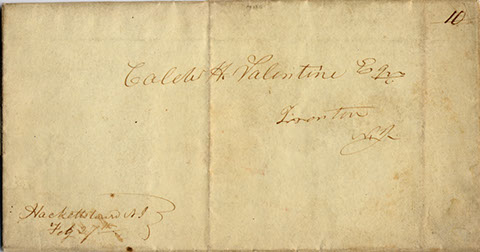 10
Caleb H. Valentine Esqr
Trenton
N.J.
Hackettstown N.J.
Feby 27th